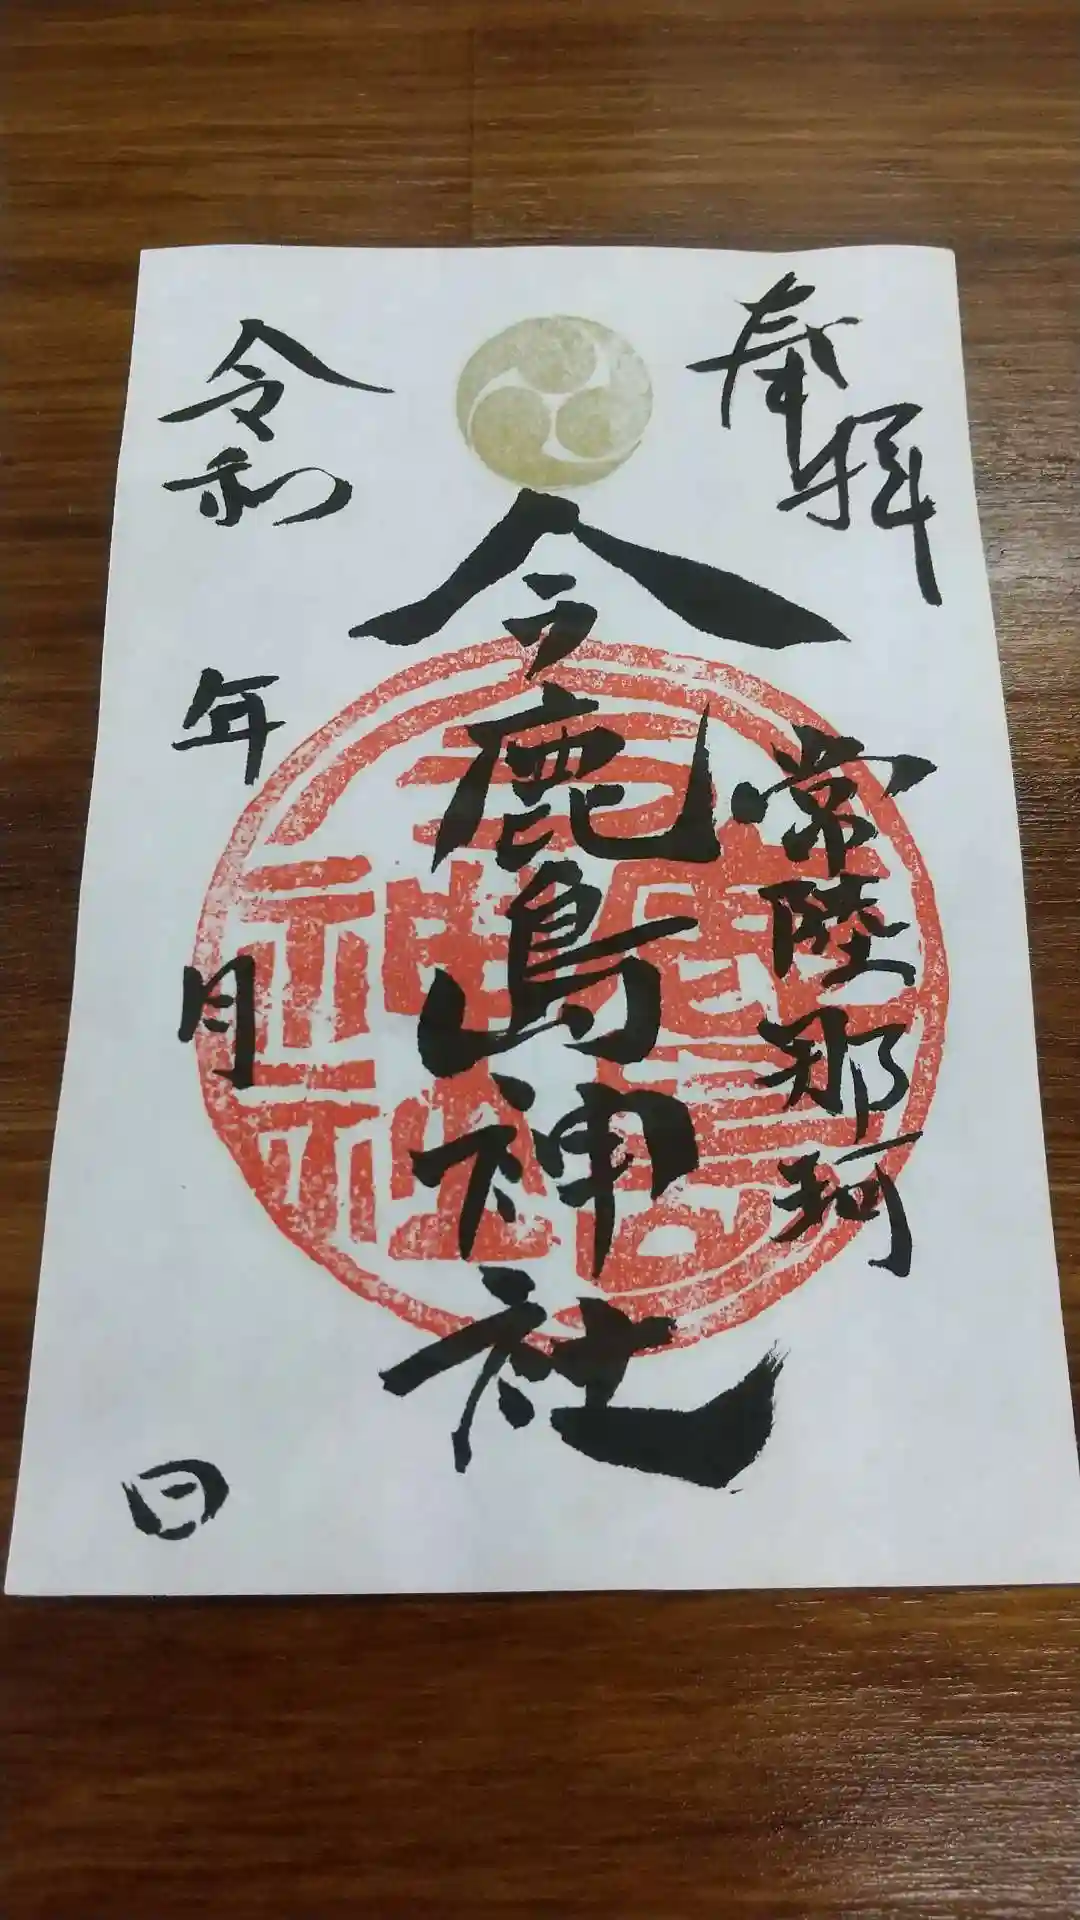 奉拝
常陸那珂
今鹿島神社
令和 年 月 日